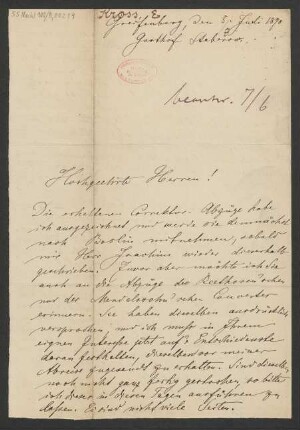 Kross, E
Greifenberg, den 5. Juli 1890
Gasthof
beantw. 7/6
Hochgeehrte Herren!
Die erhaltenen Correktur-Abzüge habe
ich ausgezeichnet und werde sie demnächst
nach Berlin mitnehmen, sobald
mir Herr Joachim wieder dieserhalb
geschrieben. Zuvor aber möchte ich Sie
auch an die Abzüge des Beethoven'schen
und des Mendelssohn'schen Concertes
erinnern. Sie haben dieselben ausdrücklich
versprochen, und ich muß in Ihrem
eignen Interesse jetzt auf's Entschiedenste
daran festhalten, dieselben vor meiner
Abreise zugesandt zu erhalten. Sind dieselben
noch nicht ganz fertig gestochen, so bitte
ich dieses in diesen Tagen ausführen zu
lassen. Es sind nicht viele Seiten.